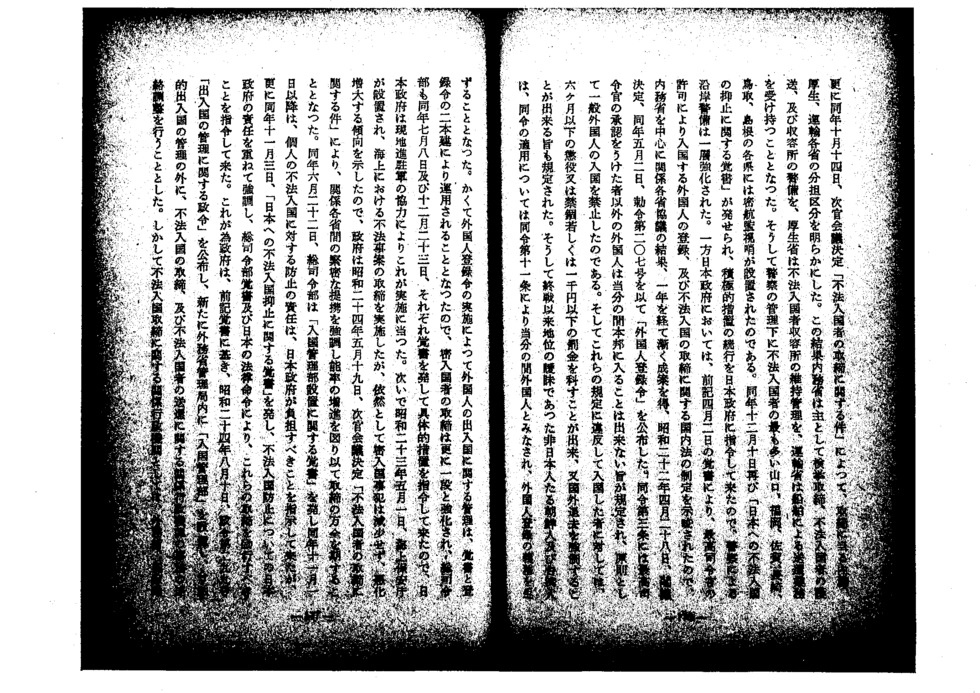 更に同年十月十四日、次官会議決定「不法入国者の取締に関する件」によつて、取締に
厚生、運輸各省の分担区分を明らかにした。この結果内務省は主として検挙取締、不法入国者の護
送、及び収容所の警備を、厚生省は不法入国者収容所の維持管理を、運輸省は船舶による
を受け持つこととなつた。そうして警察の管理下に不法入国者の最も多い山口、福岡、佐賀、長崎、
鳥取、島根の各県には密航監視哨が設置されたのである。同年十二月十日再び「日本への不法入国
の抑止に関する覚書」が発せられ、積極的措置の続行を日本政府に指令して来たので、警察による
沿岸警備は一層強化された。一方日本政府においては、前記四月二日の覚書により、最高司令官の
許可により入国する外国人の登録、及び不法入国の取締に関する国内法の制定を示唆されたので、
内務省を中心に関係各省協議の結果、一年を経て漸く成案を得、昭和二十二年四月二十八日、閣議
決定、同年五月二日、勅令第二〇七号を以て「外国人登録令」を公布した。同令第三条には最高司
令官の承認をうけた者以外の外国人は当分の間本邦に入ることは出来ない旨が規定され、原則とし
て一般外国人の入国を禁止したのである。そしてこれらの規定に違反して入国した者に対しては、
六ケ月以下の懲役又は禁錮若しくは一千円以下の罰金を科すことが出来、又国外退去を強制するこ
とが出来る旨も規定された。そうして終戦以来地位の曖昧であつた非日本人たる朝鮮人及び台湾人
は、同令の適用については同令第十一条により当分の間外国人とみなされ、外国人登録の義務を
ずることとなつた。かくて外国人登録令の実施によつて外国人の出入国に関する管理は、覚書と登
録令の二本建により運用されることとなつたので、密入国者の取締は更に一段と強化され、総司令
部も同年七月八日及び十二月二十三日、それぞれ覚書を発して具体的措置を指令して来たので、日
本政府は現地進駐軍の協力によりこれが実施に当つた。次いで昭和二十三年五月一日、海上保安庁
が設置され、海上における不法事案の取締を実施したが、依然として密入国事犯は減少せず、悪化
増大する傾向を示したので、政府は昭和二十四年五月十九日、次官会議決定「不法入国者の取締に
関する件」により、関係各省間の緊密な提携を強調し能率の増進を図り以て取締の万全を期するこ
ととなつた。同年六月二十二日、総司令部は「入国管理部設置に関する覚書」を発し同年十一月一
日以降は、個人の不法入国に対する防止の責任は、日本政府が負担すべきことを指示して来たが、
更に同年十一月三日、「日本への不法入国抑止に関する覚書」を発し、不法入国防止についての日本
政府の責任を重ねて強調し、総司令部覚書及び日本の法律命令により、これらの取締を強行すべき
ことを指令して来た。これが為政府は、前記覚書に基き、昭和二十四年八月十日、
「出入国の管理に関する政令」を公布し、新たに外務省管理局内に「入国管理部」を設置し、
的出入国の管理の外に、不法入国の取締、及び不法入国者の送還に関する
絡調整を行うこととした。しかして不法入国取締に関する関係行政機関としては、外務省、